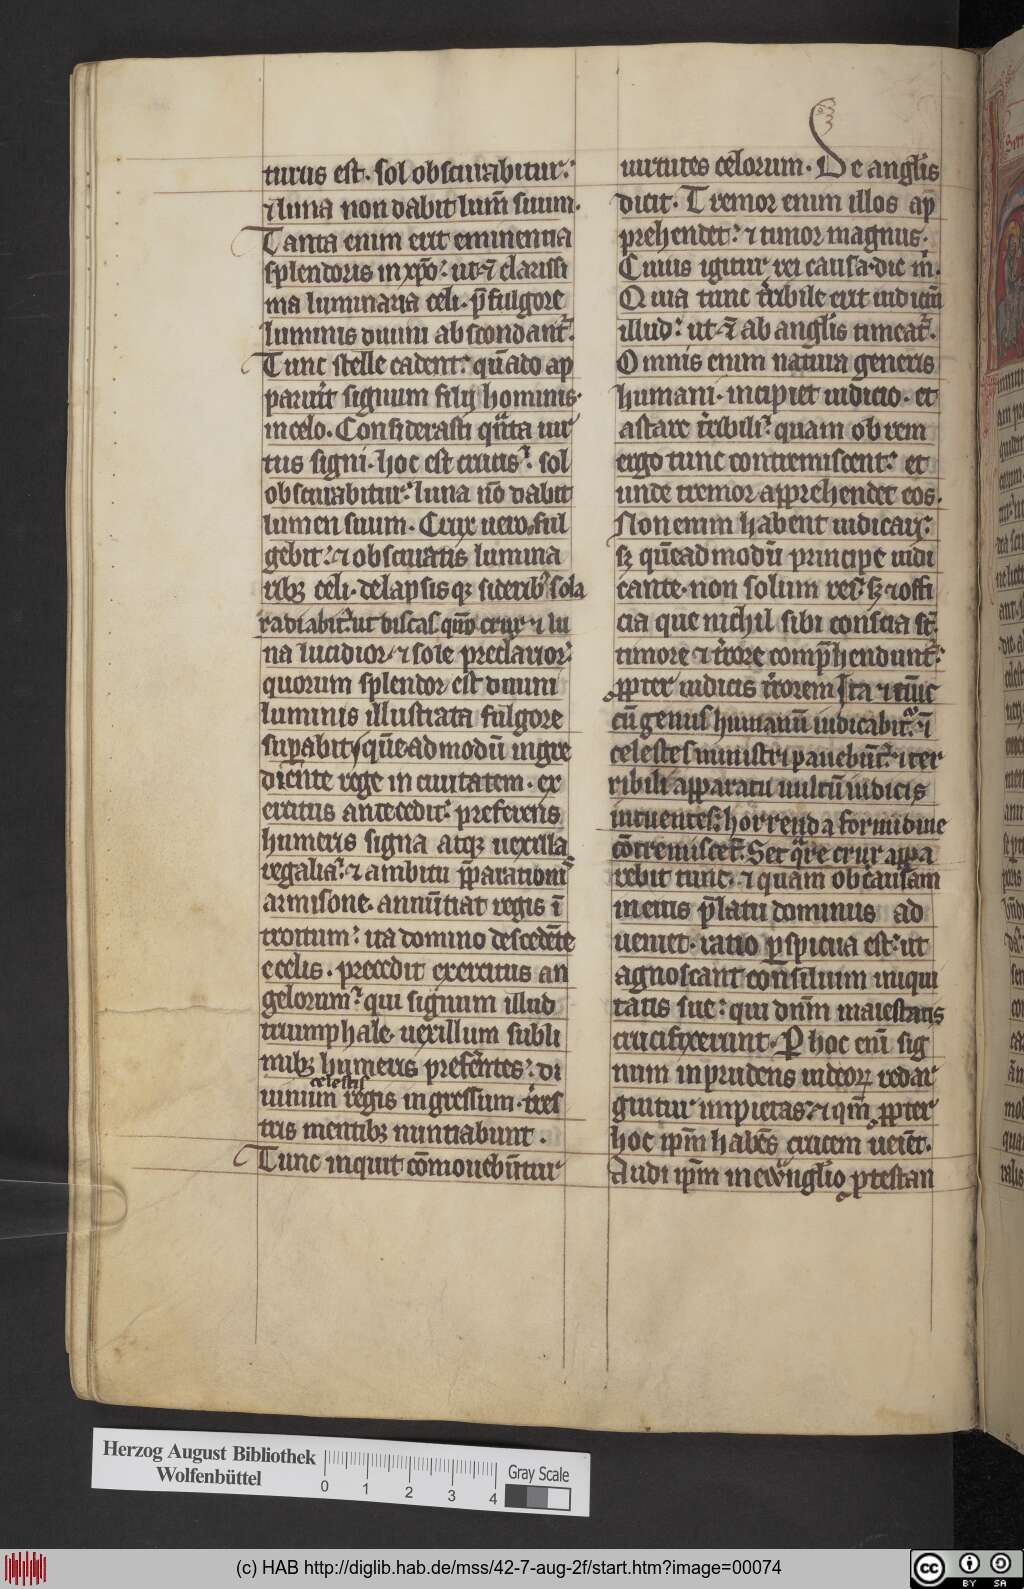 turus est. sol obscurabitur:
⁊ luna non dabit lum̅ suum.
Tanta enim erit eminentia
splendoris in xp̅o: ut ⁊ clarissi
ma luminaria celi. p̅ fulgore
luminis diuini abscondant᷑.
Tunc stelle cadent: qn̅ado ap
paruit signum filij hominis.
in celo. Considerasti qͣnta uir
tus signi. hoc est crucis. sol
obscurabitur: luna no̅ dabit
lumen suum. Crux uero ful
gebit: ⁊ obscuratis lumina
ribꝫ celi. delapsis qꝫ siderib⁹ sola
radiabit: ut discas qm̅ crux ⁊ lu
na lucidior. ⁊ sole preclarior.
quorum splendor est diuini
luminis illustrata fulgore
supabit. que̅admodu̅ ingre
die̅nte rege in ciuitatem. ex
ercitus antecedit: preferens
humeris signa atqꝫ uexilla
regalia: ⁊ ambitu p̅parationis
armisone. annu̅tiat regis i̅
troitum: ita domino desce̅de̅te
e celis. precedit exercitus an
gelorum: qui signum illud
triumphale. uexillum subli
mibꝫ humeris prefere̅tes: di
celestis
uinum regis ingressum. t̅res
tris mentibꝫ nuntiabunt.
Tunc inquit co̅mouebu̅tur
uirtutes celorum. De angl̅is
dicit. Tremor enim illos ap̅
prehendet: ⁊ timor magnus.
Cuius igitur rei causa. dic m̅.
Quia tunc t̅ribile erit iudiciu̅
illud: ut ⁊ ab angl̅is timeat᷑.
Omnis enim natura generis
humani. incipiet iudicio. et
astare t̅ribili: quam ob rem
ergo tunc contremiscent: et
unde tremor apprehendet eos.
Non enim habent iudicari:
sꝫ que̅admodu̅ principe iudi
cante. non solum rei: sꝫ ⁊ offi
cia que nichil sibi conscia st̅.
timore ⁊ t̅rore comp̅hendunt᷑:
ꝓpter iudicis t̅rorem Ita ⁊ tu̅c
cu̅ genus humanu̅ iudicabit᷑. ⁊
celestes ministri pauebu̅t᷑. ⁊ ter
ribili apparatu uultu̅ iudicis
intuentes: horrenda formidine
co̅tremiscet᷑. Set qͣre crux appa
rebit tunc. ⁊ quam ob causam
in eius p̅latu dominus ad
ueniet. ratio ꝑspicua est: ut
agnoscant consilium iniqui
tatis sue: qui dn̅m maiestatis
crucifixerunt. P̲ hoc eni̅ sig
num inprudens iudeoꝝ redar
guitur impietas: ⁊ qm̅ ꝓpter
hoc ip̅m habe̅s crucem ueie̅t.
Audi ip̅m in ewͣnglio ꝓtestan
Herzog August Bibliothek
Wolfenbüttel
0 1 2 3 4
Gray Scale
(c) HAB http://diglib.hab.de/mss/42-7-aug-2f/start.htm?image=00074
cc BY SA